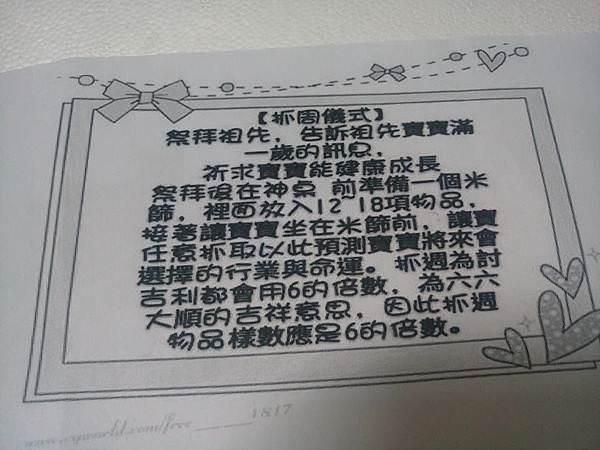 【抓周儀式】
祭拜祖先，告訴祖先寶寶滿
一歲的訊息，
祈求寶寶能健康成長
祭拜後在神桌 前準備一個米
篩，裡面放入12~18項物品，
接著讓寶寶坐在米篩前，讓寶
任意抓取以此預測寶寶將來會
選擇的行業與命運。抓週為討
吉利都會用6的倍數，為六六
大順的吉祥意思，因此抓週
物品樣數應是6的倍數。
www.cyworld.com/free_____1817